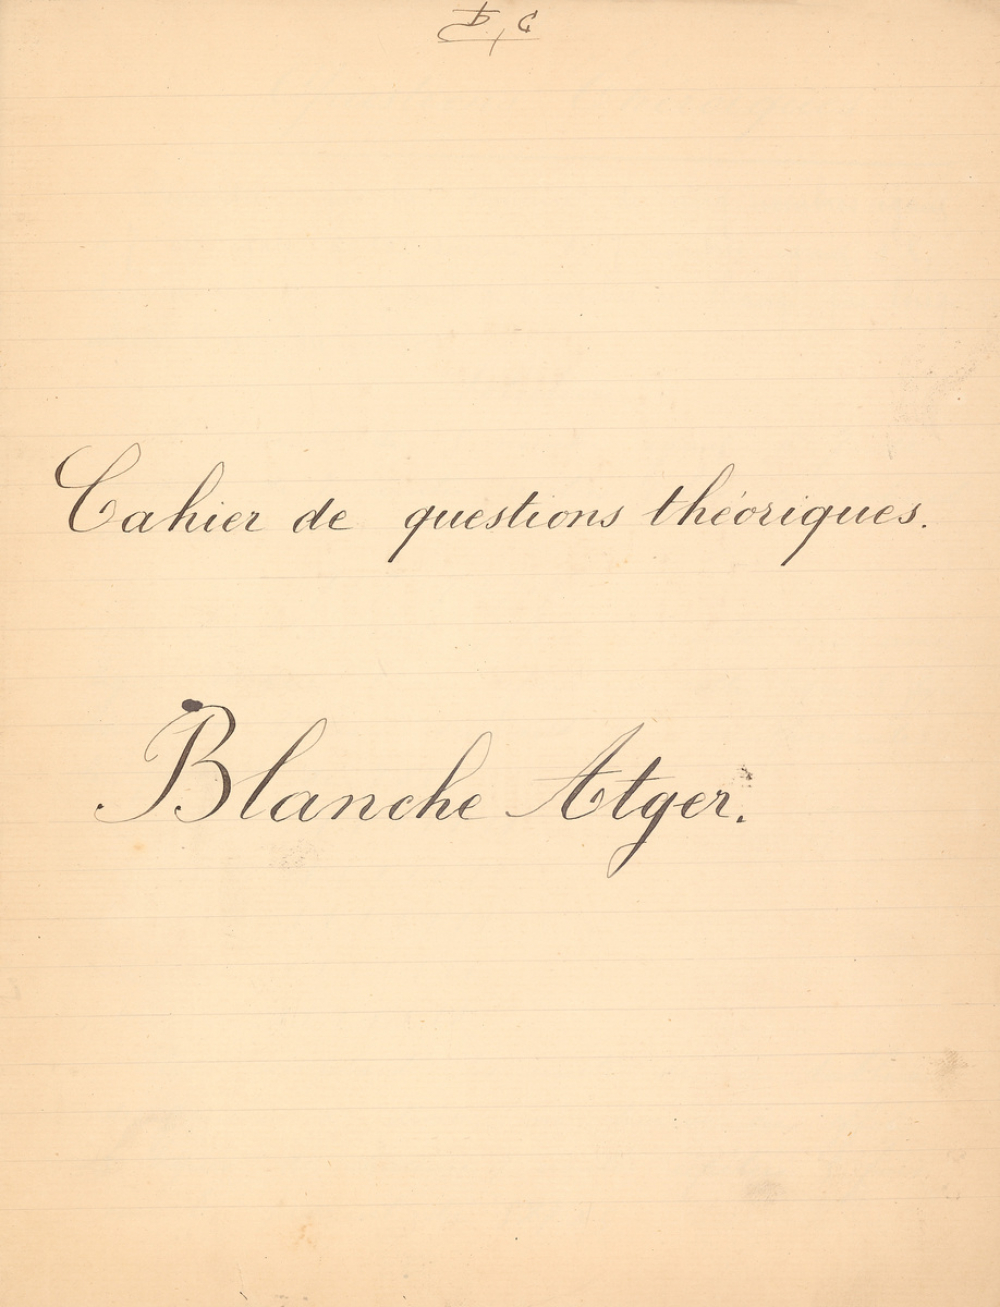 Cahier de questions théoriques.
Blanche Atger.